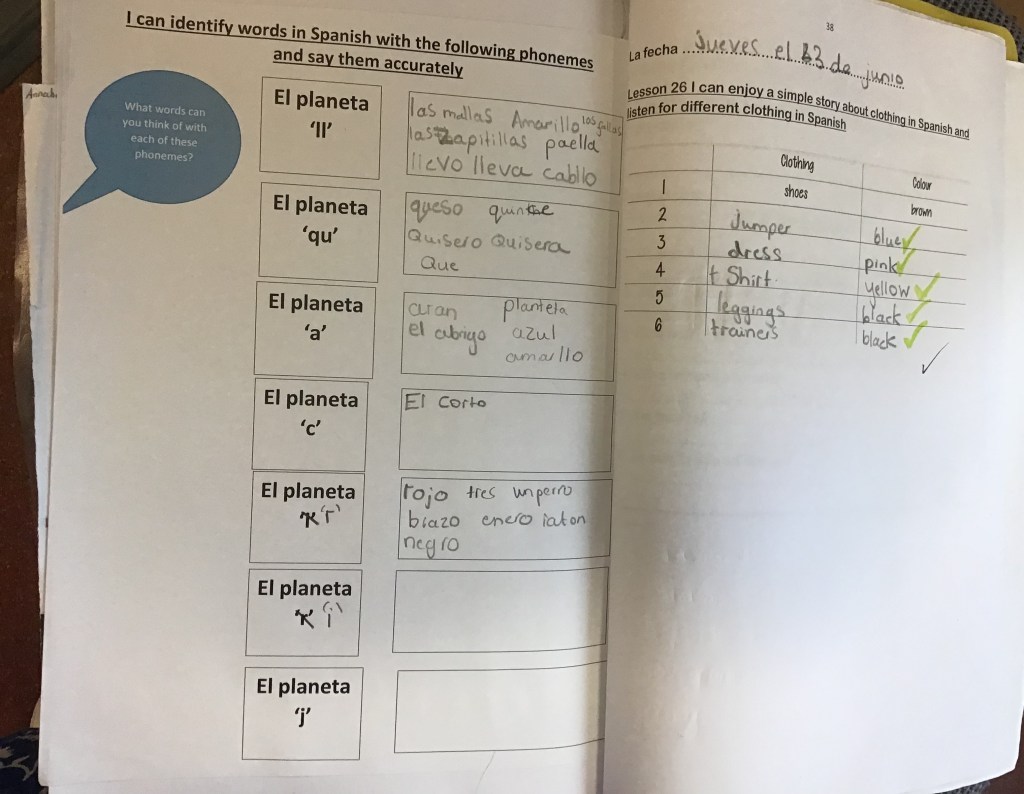 I can identify words in Spanish with the following phonemes
and say them accurately
What words can
you think of with
each of these
phonemes?
El planeta
'll'
las mallas Amarillo los gallas
las zapitillas paella
llevo lleva cabllo
El planeta
'qu'
queso
Quisero Quisera
Que
El planeta
'a'
planteta
el abrigo azul
amarllo
El planeta
'c'
El corto
El planeta
'r'
rojo tres un perro
brazo enero raton
negro
El planeta
'i'
El planeta
'j'
38
La fecha jueves el 13 de junio
Lesson 26 I can enjoy a simple story about clothing in Spanish and
listen for different clothing in Spanish
Clothing Colour
1 shoes brown
2 Jumper blue
3 dress pink
4 t Shirt yellow
5 leggings black
6 trainers black